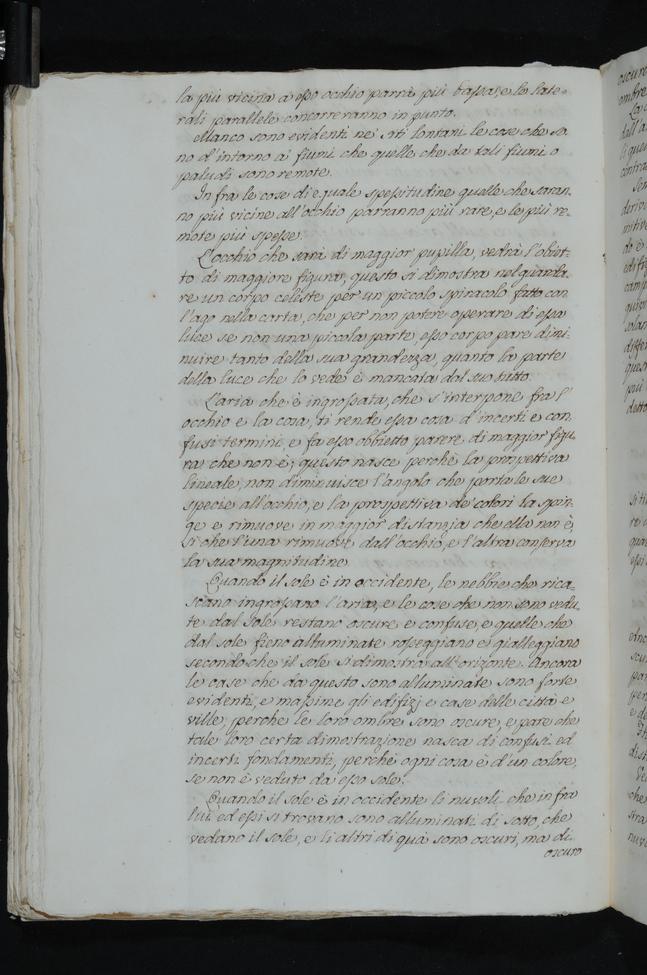 la più vicina à esso occhio parrà più bassa, e le late-
rali parallele concorreranno in punto.
Manco sono evidenti ne' siti lontani le cose che so-
no d'intorno ai fiumi che quelle che da tali fiumi o
paludi sono remote.
In fra le cose d'eguale spessitudine quelle che saran-
no più vicine all'occhio parranno più rare, e le più re-
mote più spesse.
L'occhio che sarà di maggior pupilla, vedrà l'obiet-
to di maggiore figura, questo si dimostra nel guarda-
re un corpo celeste per un piccolo spiracolo fatto con
l'ago nella carta, che per non potere operare di essa
luce se non una piccola parte, esso corpo pare dimi-
nuire tanto della sua grandezza, quanto la parte
della luce che lo vede è mancata dal suo tutto.
L'aria che è ingrossata, che s'interpone fra l'
occhio e la cosa, ti rende essa cosa d'incerti e con-
fusi termini, e fa esso obbietto parere di maggior figu-
ra che non è; questo nasce perchè la prospettiva
lineale, non diminuisce l'angolo che porta le sue
specie all'occhio, e la prospettiva de' colori la spin-
ge e rimuove in maggior distanzia che ella non è,
si che l'una rimuove dall'occhio, e l'altra conserva
la sua magnitudine.
Quando il sole è in occidente, le nebbie che rica-
scano ingrossano l'aria, e le cose che non sono vedu-
te dal sole restano oscure e confuse, e quelle che
dal sole fieno alluminate rosseggiano e gialleggiano
secondo che il sole si dimostra all'orizonte. Ancora
le case che da questo sono alluminate sono forte
evidenti, e massime gli edifizj e case delle città e
ville, perchè le loro ombre sono oscure, e pare che
tale loro certa dimostrazione nasca di confusi ed
incerti fondamenti, perchè ogni cosa è d'un colore,
se non è veduto da esso sole.
Quando il sole è in occidente li nuvoli che in fra
lui ed essi si trovano sono alluminati di sotto, che
vedano il sole, e li altri di quà sono oscuri, ma di
oscuro